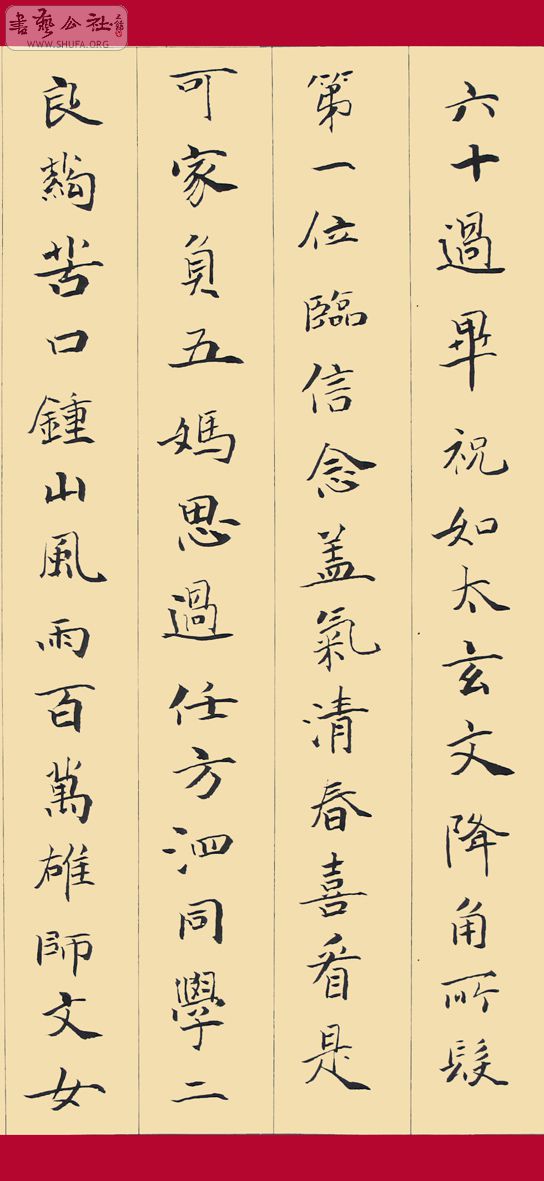 書藝公社
WWW.SHUFA.ORG
六十過畢祝如太玄文降角所髮
第一位臨信念蓋氣清春喜看是
可家負五媽思過任方泗同學二
良鷜苦口鍾山風雨百萬雄師文女